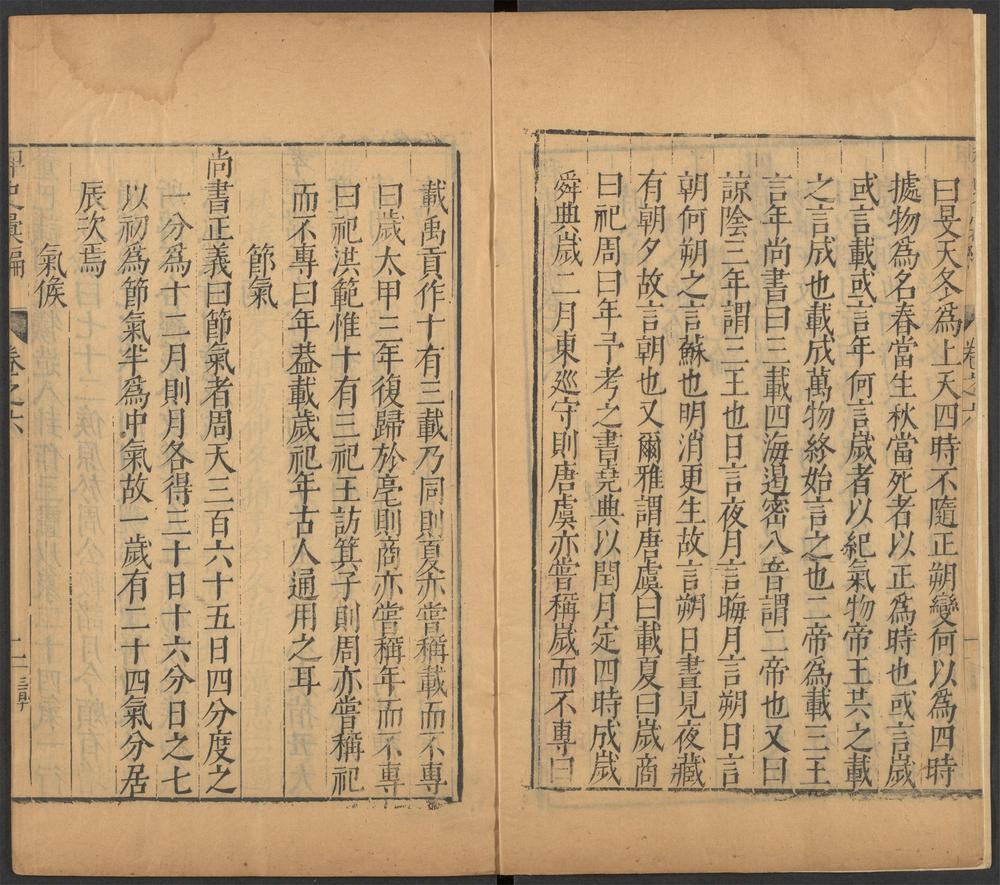 曰旻天冬爲上天四時不隨正朔變何以爲四時
據物爲名春當生秋當死者以正爲時也或言歲
或言載或言年何言歲者以紀氣物帝王共之載
之言成也載成萬物終始言之也二帝爲載三王
言年尚書曰三載四海遏密八音謂二帝也又曰
諒陰三年謂三王也日言夜月言晦月言朔日言
朝何朔之言蘇也明消更生故言朔日晝見夜藏
有朝夕故言朝也又爾雅謂唐虞曰載夏曰歲商
曰祀周曰年予考之書堯典以閏月定四時成歲
舜典歲二月東廵守則唐虞亦嘗稱歲而不專曰
卷之六
載禹貢作十有三載乃同則夏亦嘗稱載而不專
曰歲太甲三年復歸於亳則商亦嘗稱年而不專
曰祀洪範惟十有三祀王訪箕子則周亦嘗稱祀
而不專曰年葢載歲祀年古人通用之耳
節氣
尚書正義曰節氣者周天三百六十五日四分度之
一分爲十二月則月各得三十日十六分日之七
以初爲節氣半爲中氣故一歲有二十四氣分居
辰次焉
氣候
稗史彙編
卷之六
二